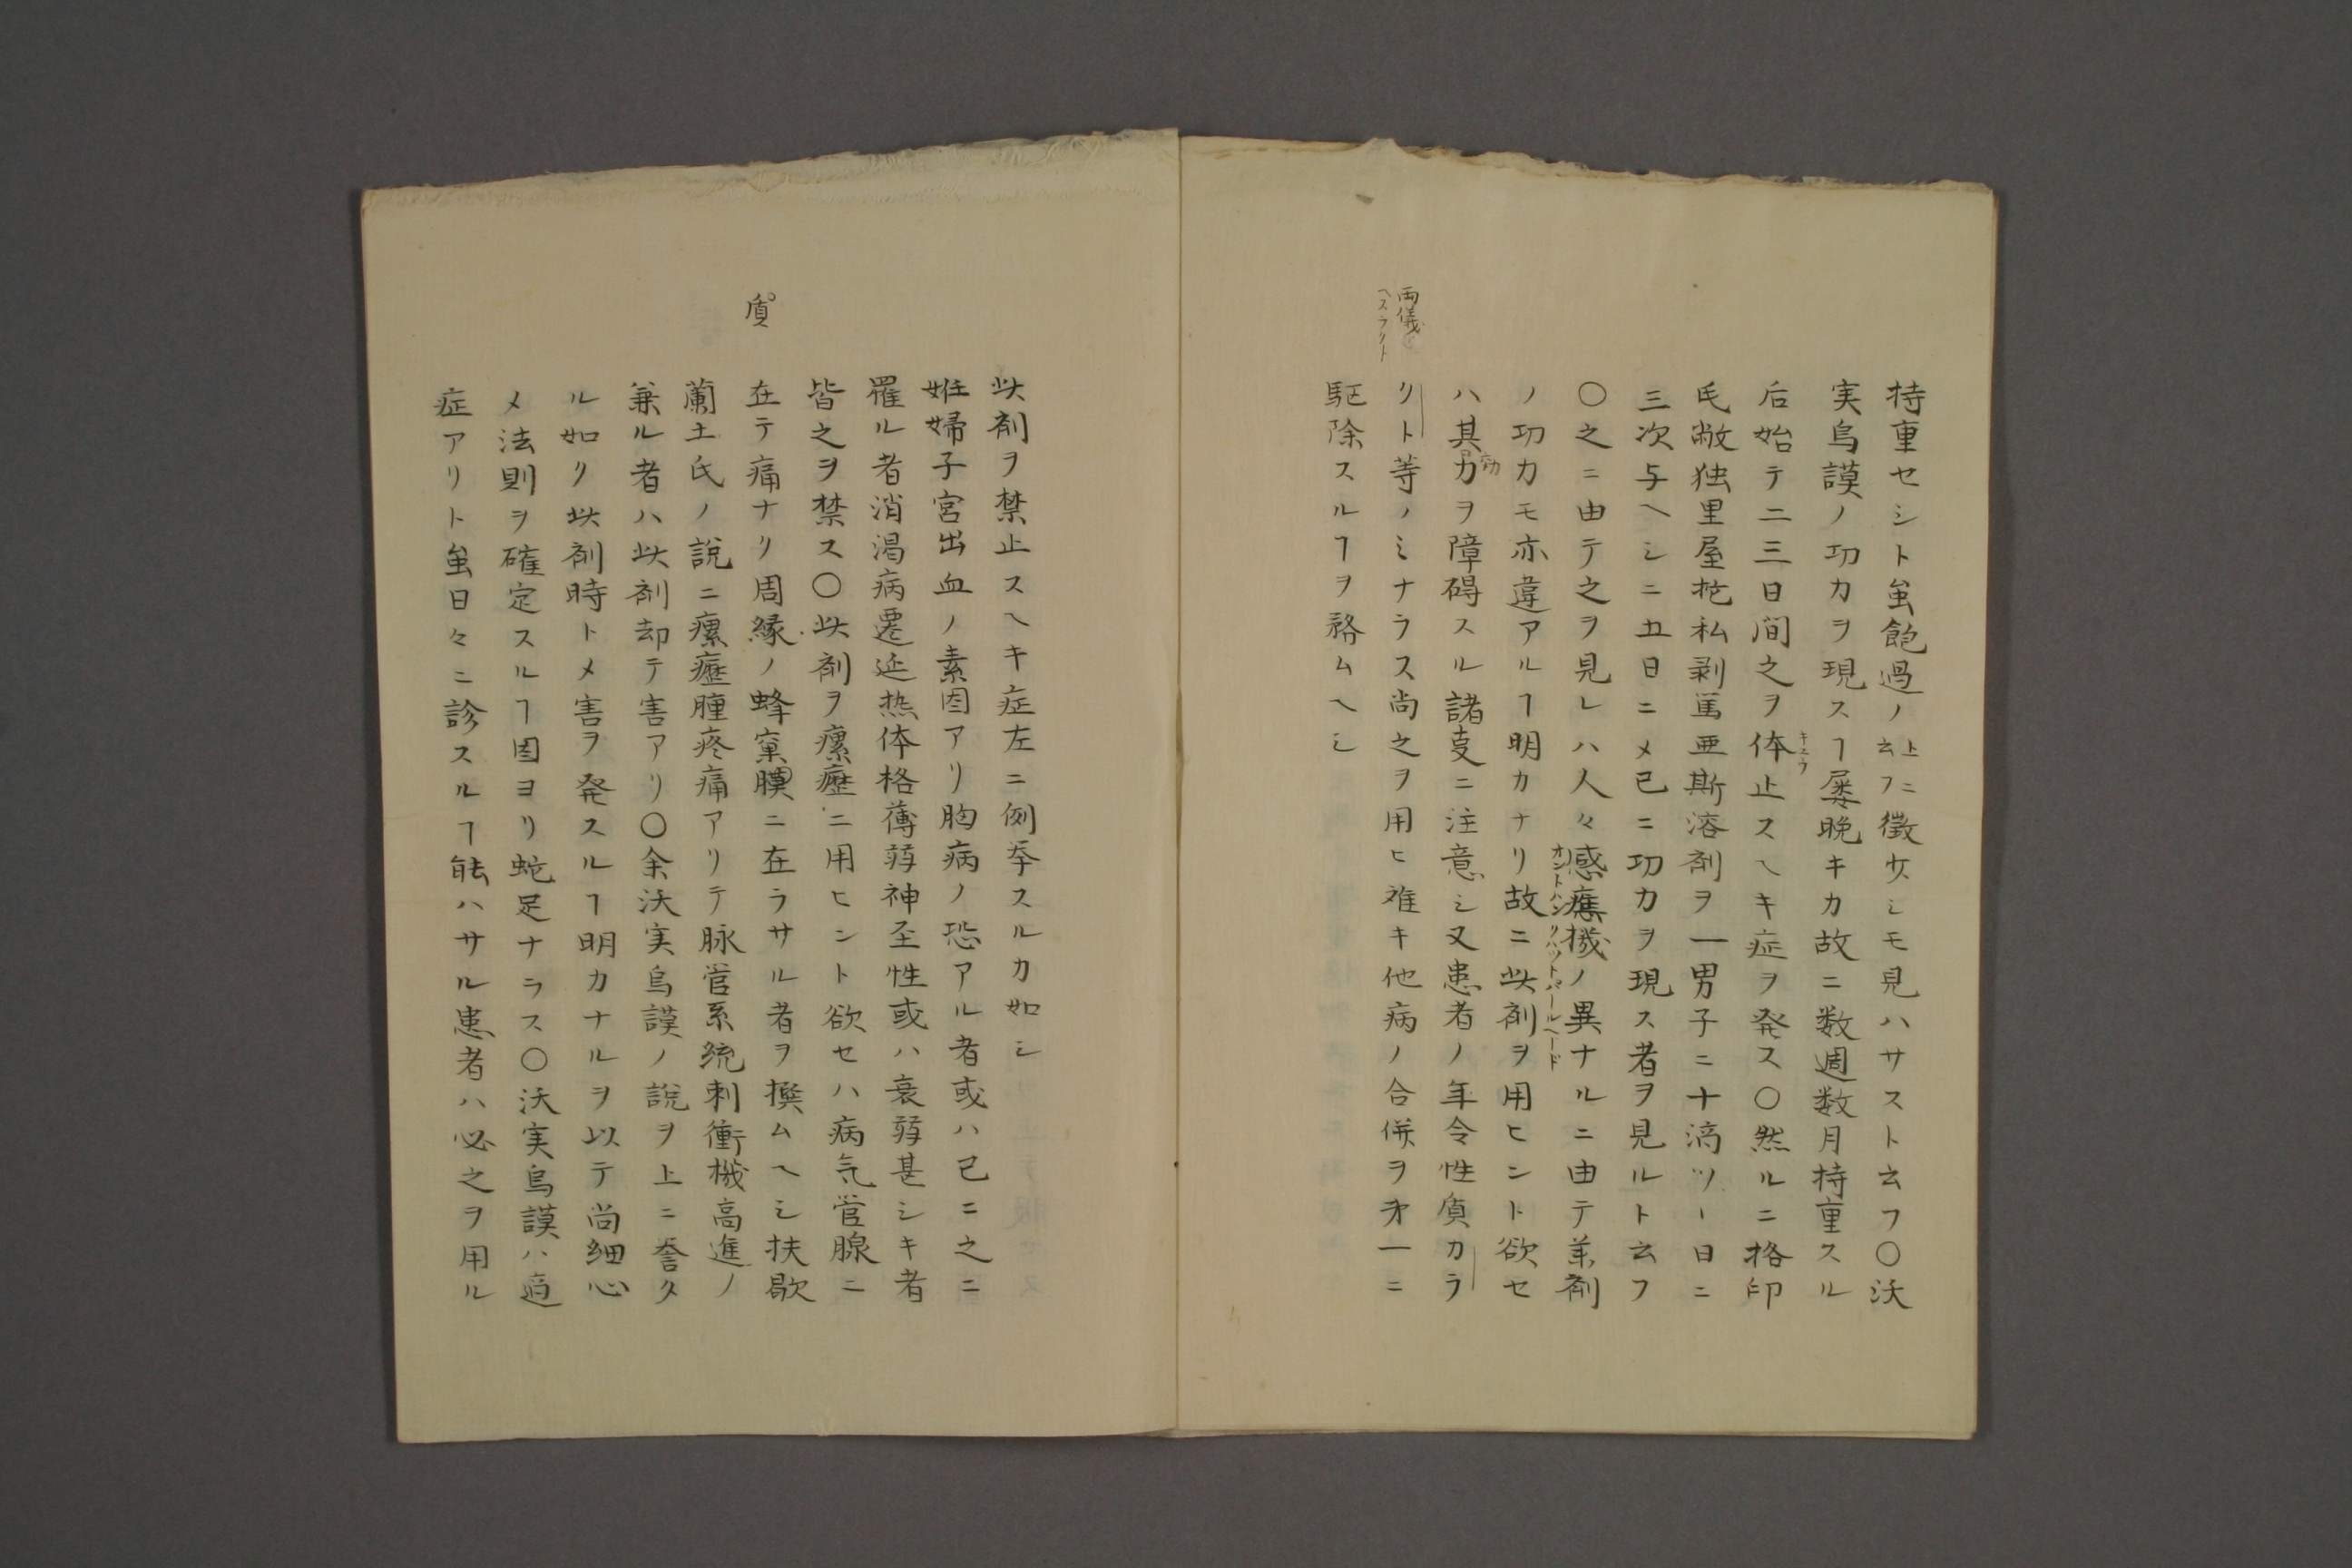 持重セシト虽飽過ノ上ニ云フニ徴サシモ見ハサスト云フ〇沃
実烏謨ノ功力ヲ現スヿ屡晩キカ故ニ数週数月持重スル
后始テ二三日間之ヲ休止スヘキ症ヲ発ス〇然ルニ格印
キュウ
氏敞独里屋扡私剥篤亜斯溶剤ヲ一男子ニ十滴ツヽ日ニ
三次与ヘシニ五日ニメ已ニ功力ヲ現ス者ヲ見ルト云フ
〇之ニ由テ之ヲ見レハ人々感應機ノ異ナルニ由テ薬剤
オントハンクハットバールヘード
ノ功力モ亦違アルヿ明カナリ故ニ此剤ヲ用ヒント欲セ
ハ其力ヲ障碍スル諸㕝ニ注意シ又患者ノ年令性質カラ
効
リト等ノミナラス尚之ヲ用ヒ難キ他病ノ合併ヲ第一ニ
両儀
ヘスラクト
駆除スルヿヲ務ムヘシ
此剤ヲ禁止スヘキ症左ニ例挙スルカ如シ
妊婦子宮出血ノ素因アリ胸病ノ恐アル者或ハ已ニ之ニ
罹ル者消渇病遷延热体格薄弱神至性或ハ衰弱甚シキ者
皆之ヲ禁ス〇此剤ヲ瘰癧ニ用ヒント欲セハ病気管腺ニ
在テ痛ナリ周縁ノ蜂窠膜ニ在ラサル者ヲ撰ムヘシ扶歇
質
蘭土氏ノ説ニ瘰癧腫疼痛アリテ脉管系統刺衝機高進ノ
兼ル者ハ此剤却テ害アリ〇余沃実烏謨ノ説ヲ上ニ誉タ
ル如ク此剤時トメ害ヲ発スルヿ明カナルヲ以テ尚細心
メ法則ヲ確定スルヿ固ヨリ蛇足ナラス〇沃実烏謨ハ適
症アリト虽日々ニ診スルヿ能ハサル患者ハ必之ヲ用ル